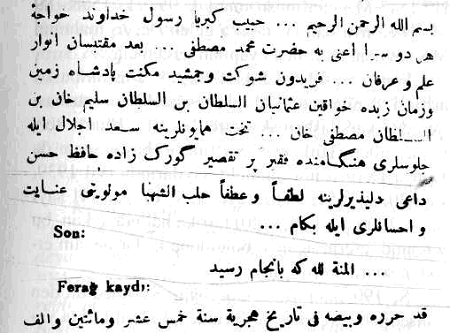 بسم الله الرحمن الرحيم ... حبيب كبريا رسول خداوند خواجهٔ
هر دو سرا اعنى به حضرت محمد مصطفى ... بعد مقتبسان انوار
علم و عرفان ... فريدون شوكت وجمشيد مكنت پادشاه زمين
وزمان زبده خواقين عثمانيان السلطان بن السلطان سليم خان بن
السلطان مصطفى خان ... تخت همايونلرينه سعد اجلال ايله
جلوسلرى هنگامنده فقير پر تقصير گورك زاده حافظ حسن
داعى دلپذيرلرينه لطفاً و عطفاً حلب الشهبا مولويتى عنايت
و احسانلرى ايله بكام ...
Son:
... المنة لله كه بانجام رسيد
Ferağ kaydı:
قد حرره وبيضه فى تاريخ هجرية سنة خمس عشر ومائتين والف